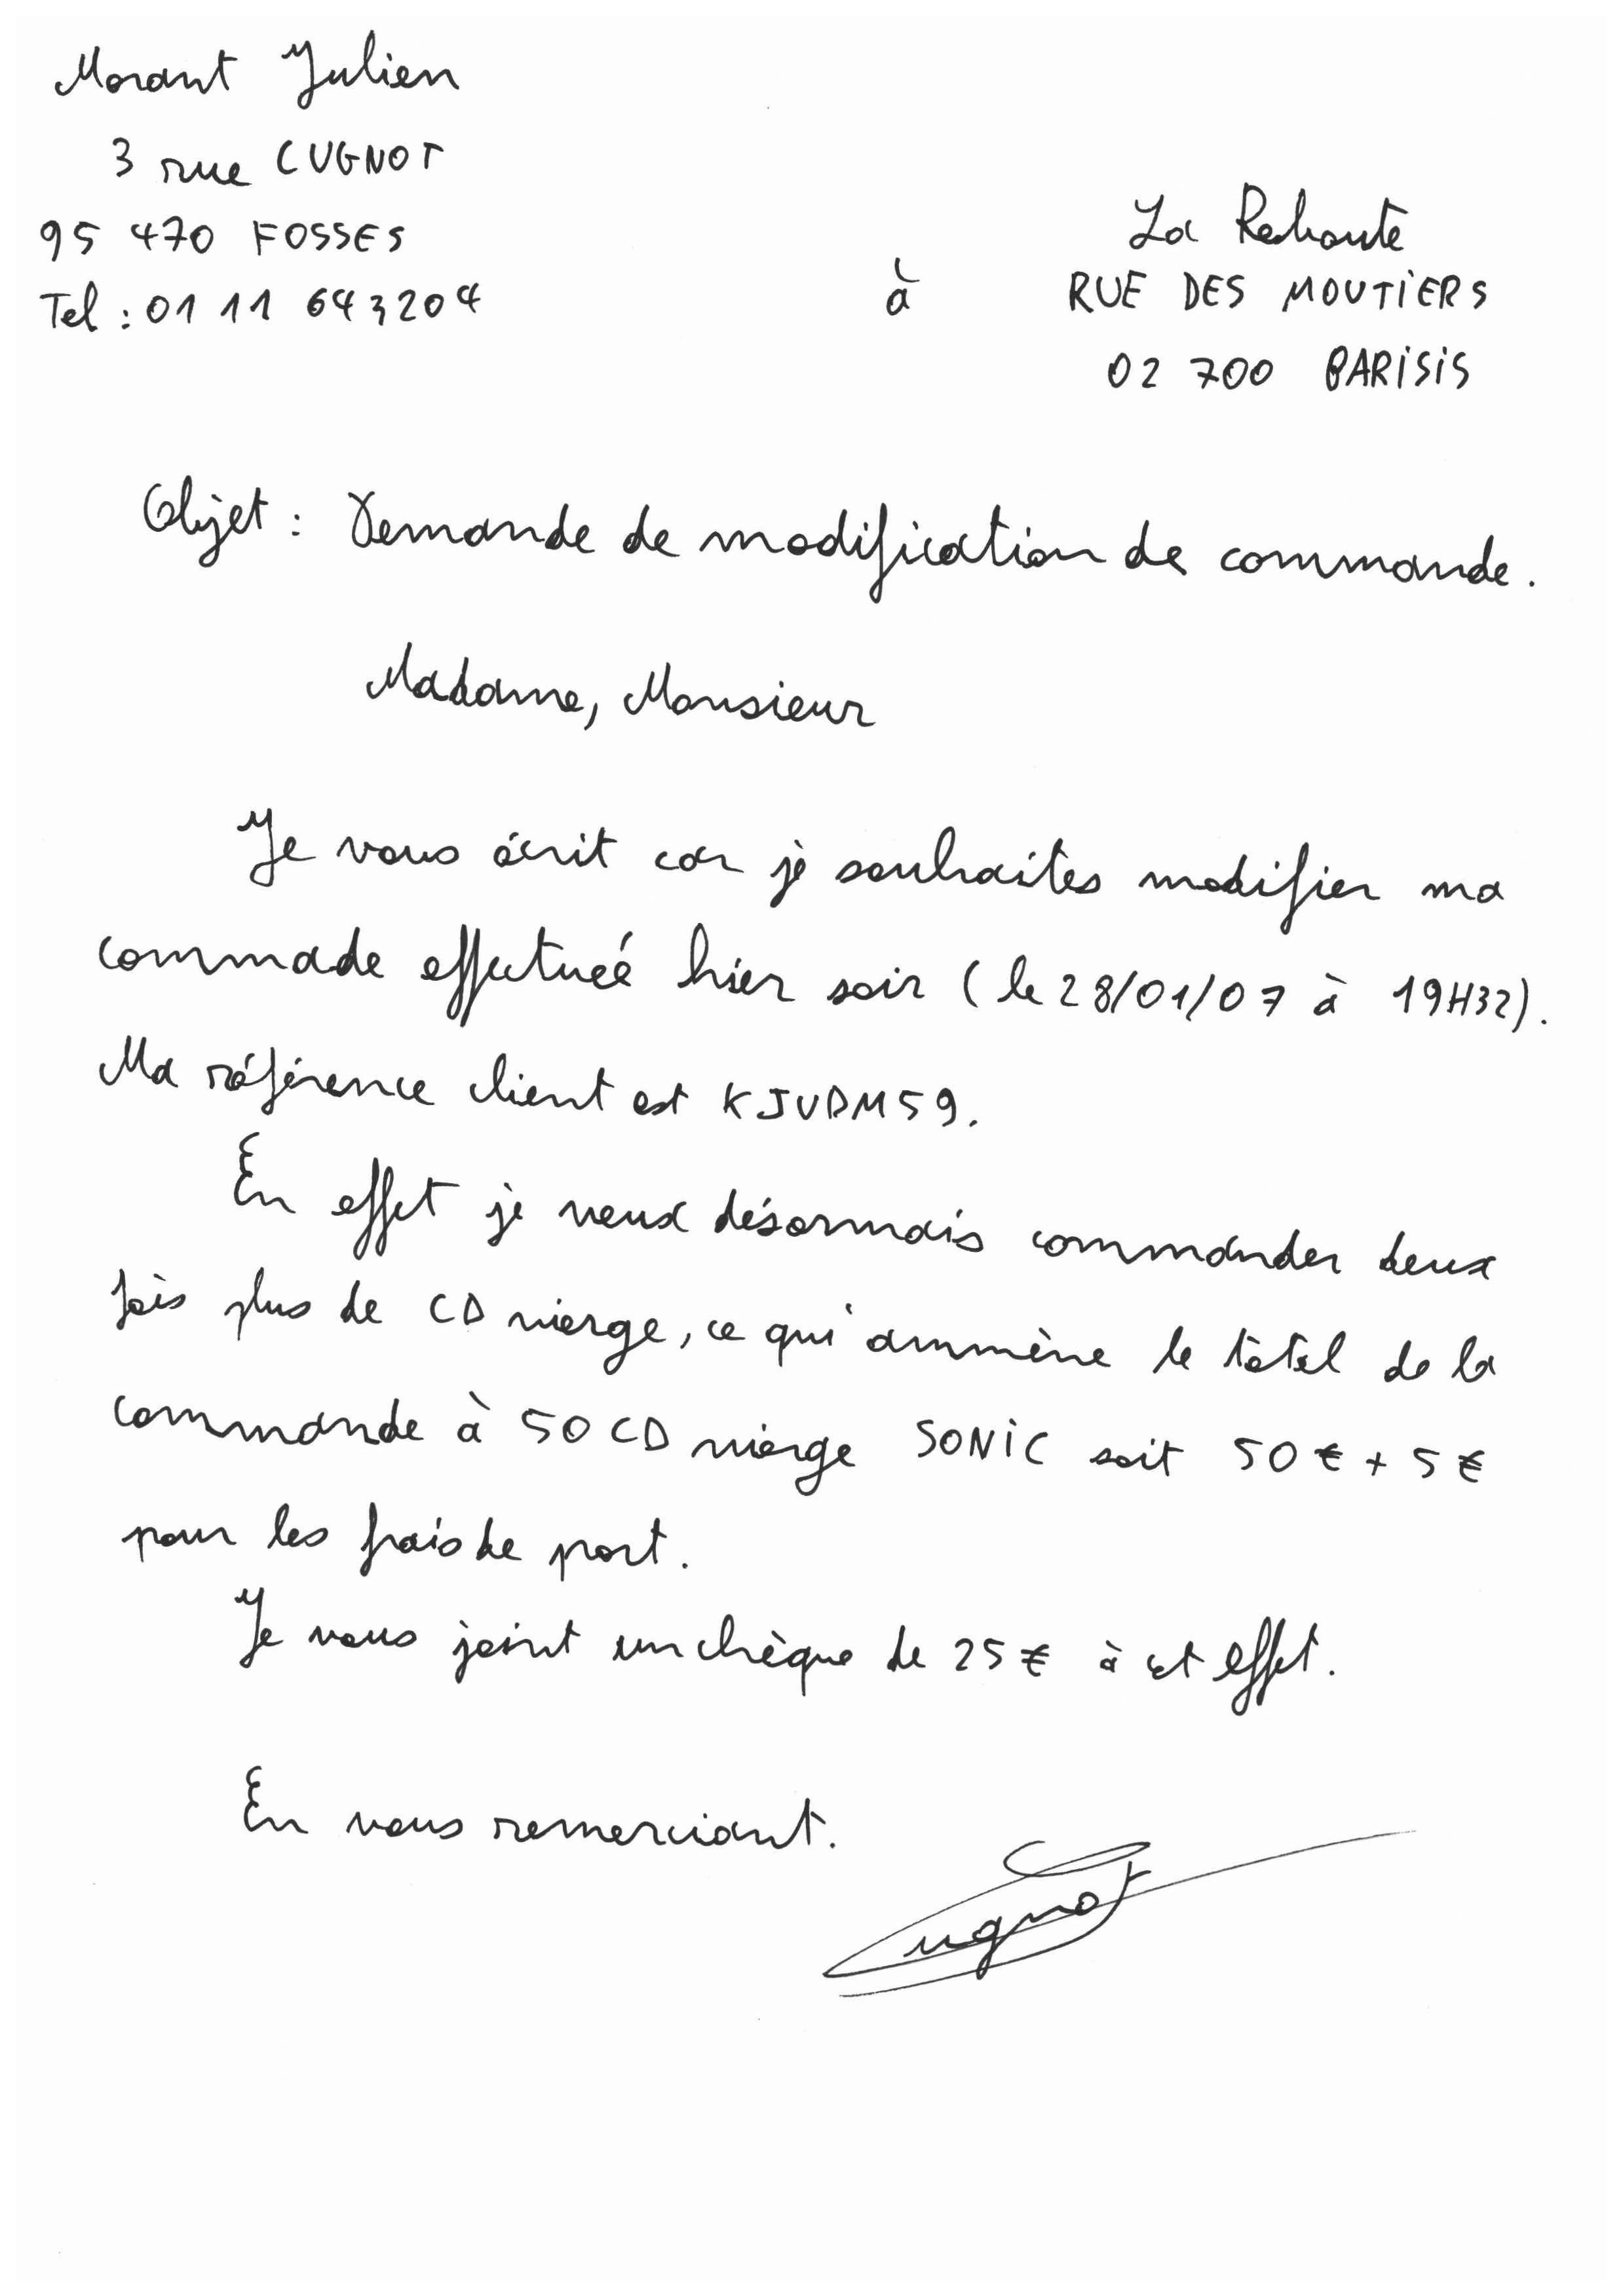 Morant Julien
3 rue CUGNOT
95 470 FOSSES
Tel : 01 11 643204
La Rehoute
à RUE DES MOUTIERS
02 700 BARISIS
Objet : Demande de modification de commande.
Madame, Monsieur
Je vous écrit car je souhaites modifier ma
commade effectuéé hier soir (le 28/01/07 à 19H32).
Ma référence client est KJUDM59.
En effet je veux désormais commander deux
fois plus de CD vierge, ce qui ammène le total de la
commande à 50 CD vierge SONIC soit 50 € + 5 €
pour les frais de port.
Je vous joint un chèque de 25 € à cet effet.
En vous remerciant.
Cugnot